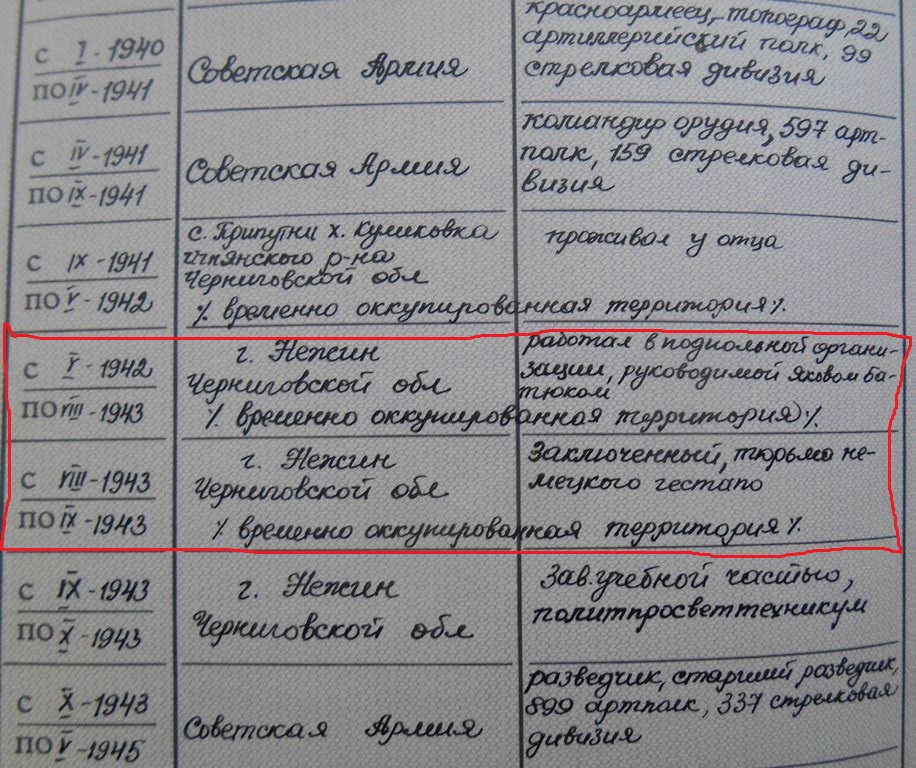 красноармеец, топограф, 22
С I-1940
артиллерийский полк, 99
Советская Армия
стрелковая дивизия
ПО IV-1941
командир орудия, 597 арт-
С IV-1941
полк, 159 стрелковая ди-
Советская Армия
визия
ПО IX-1941
с. Припутни х. Куликовка
проживал у отца
С IX-1941
Ичнянского р-на
Черниговской обл
ПО V-1942
% временно оккупированная территория %.
работал в подпольной органи-
г. Нежин
С V-1942
зации, руководимой Яковом Ба-
Черниговской обл
тюком
ПО VIII-1943
% временно оккупированная территория %
Заключенный, тюрьма не-
г. Нежин
С VIII-1943
мецкого гестапо
Черниговской обл
ПО IX-1943
% временно оккупированная территория %.
Зав. учебной частью,
С IX-1943
г. Нежин
политпросветтехникум
ПО X-1943
Черниговской обл
разведчик, старший разведчик,
С X-1943
899 артполк, 337 стрелковая
Советская Армия
дивизия
ПО V-1945